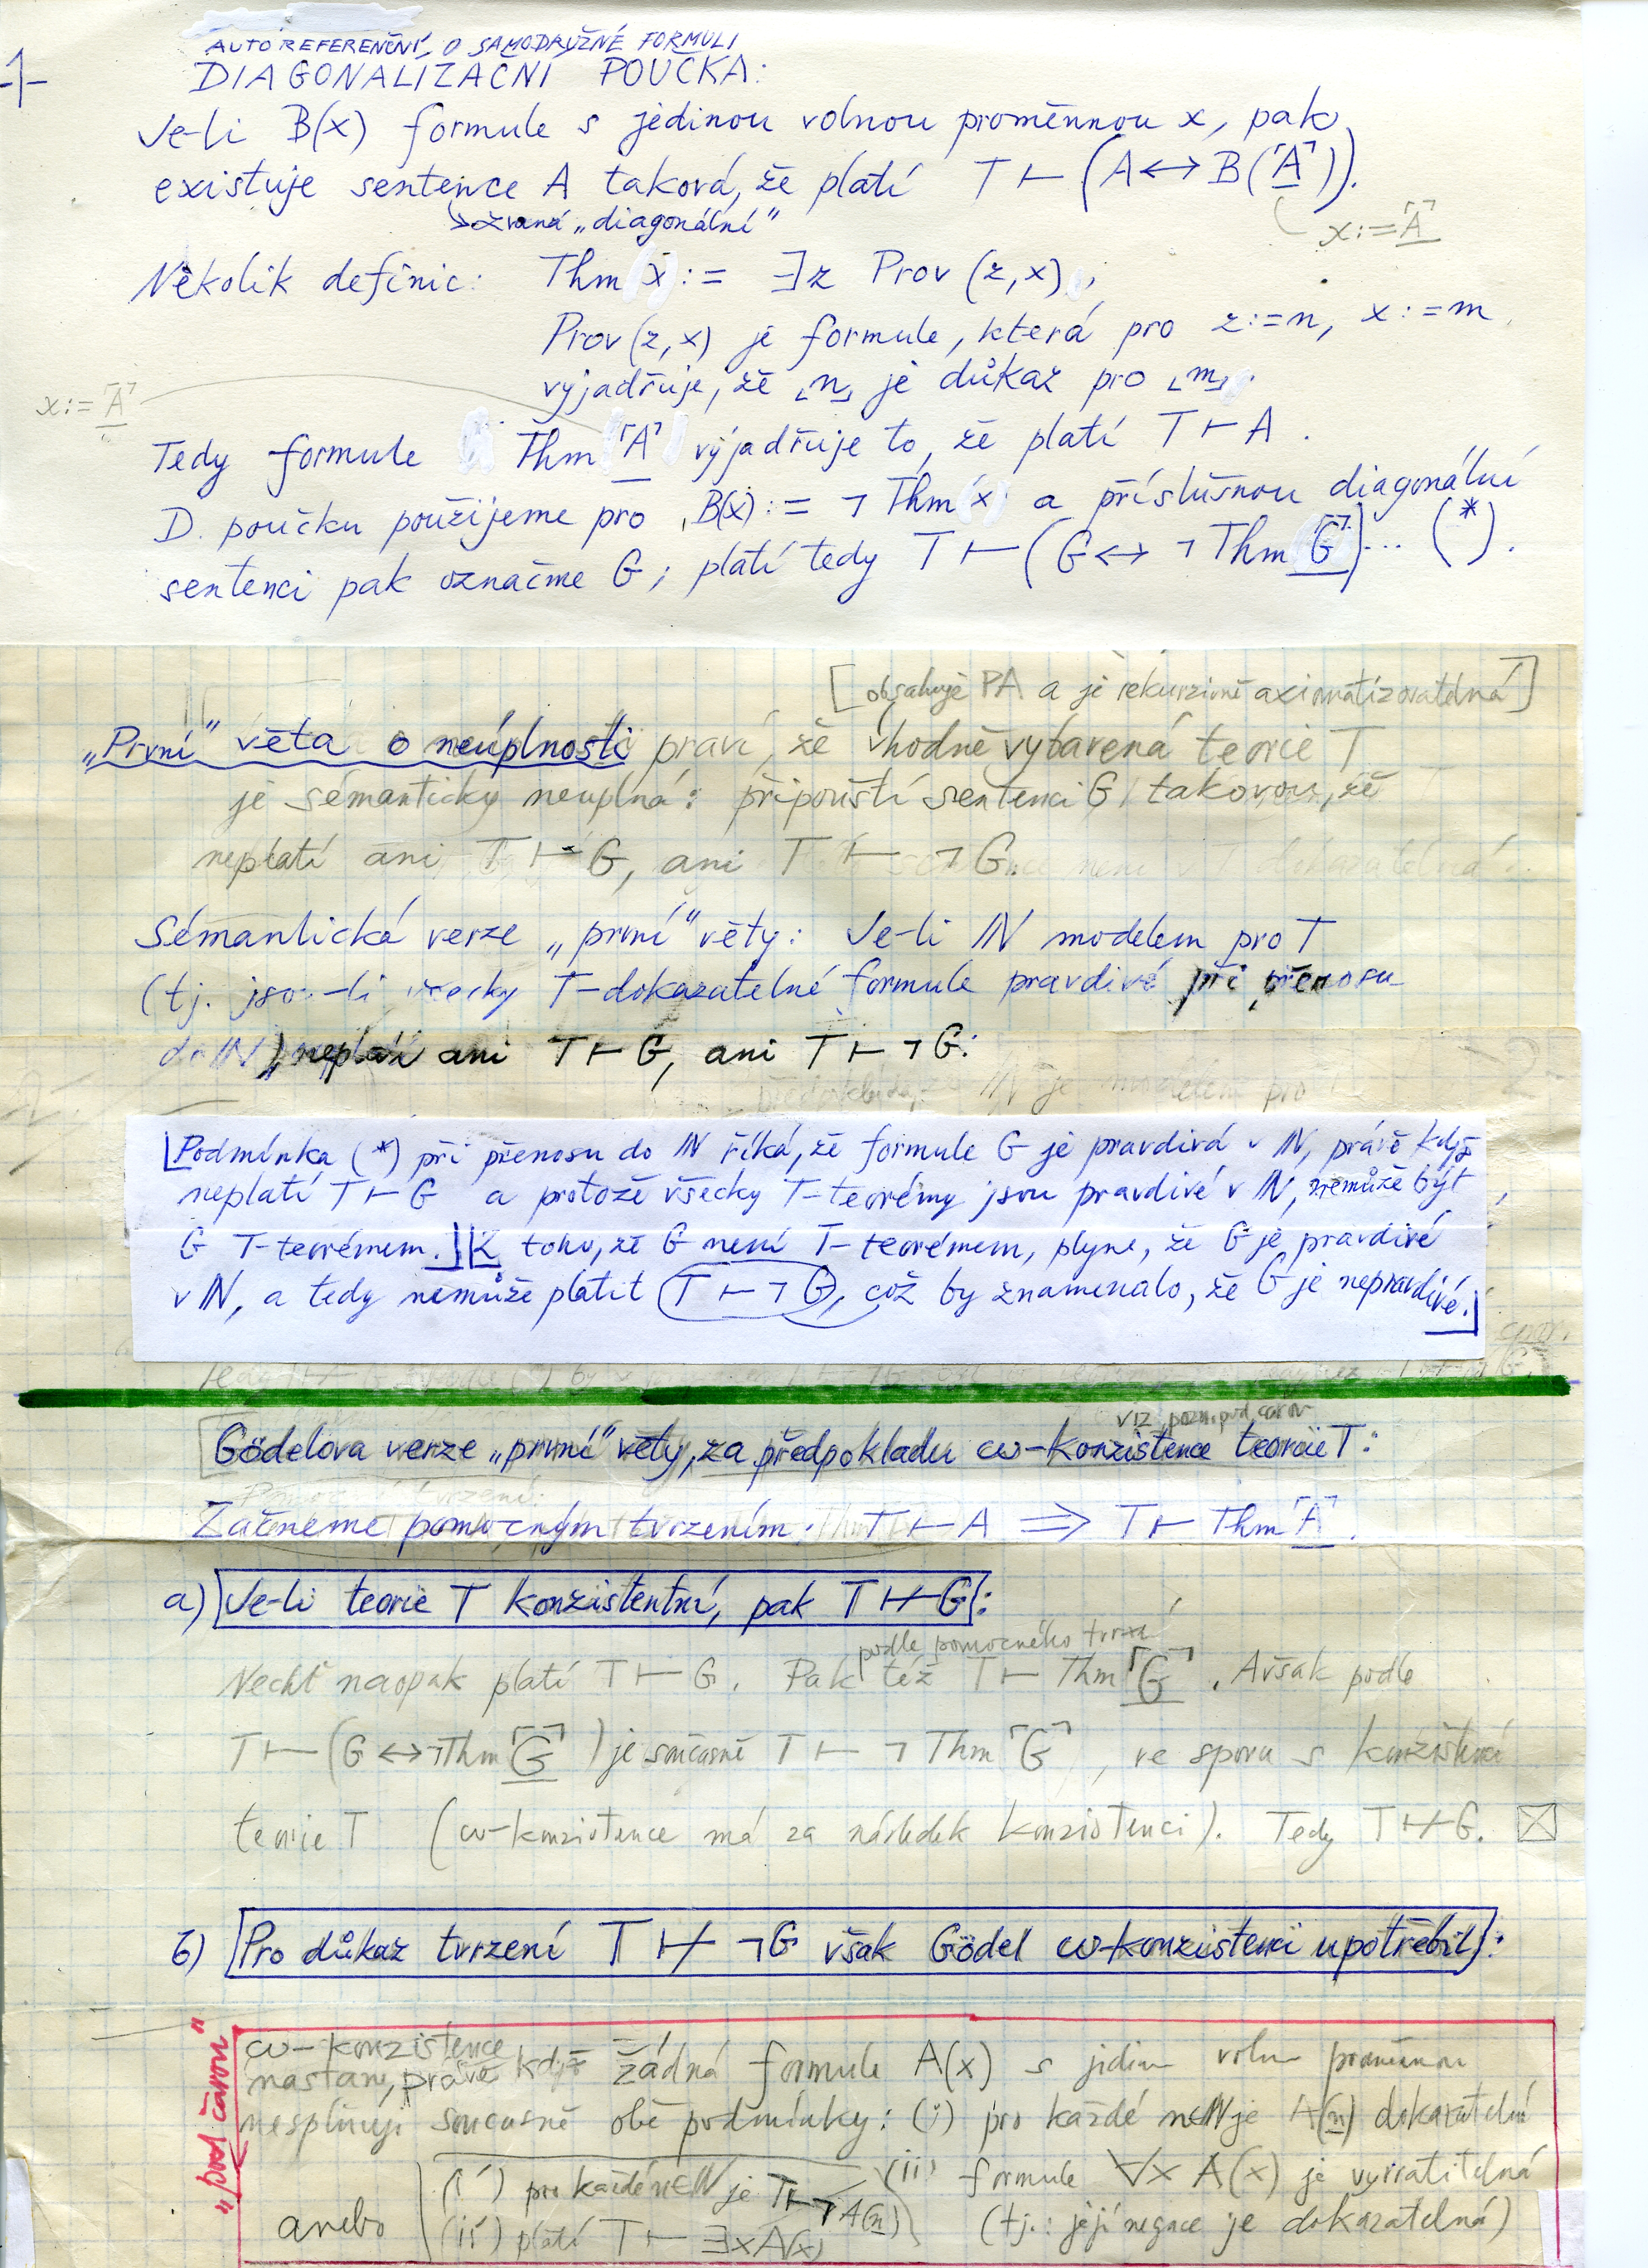 -1-
AUTOREFERENČNÍ, O SAMODRUŽNÉ FORMULI
DIAGONALIZAČNÍ POUČKA:
Je-li B(x) formule s jedinou volnou proměnnou x, pak
existuje sentence A taková, že platí T ⊢ (A ↔ B(⌜A⌝)).
↳ zvaná „diagonální“
x:=⌜A⌝
Několik definic: Thm x := ∃z Prov (z,x),
Prov(z,x) je formule, která pro z:=n, x:=m
vyjadřuje, že ⌞n⌟ je důkaz pro ⌞m⌟.
x:=⌜A⌝
Tedy formule Thm⌜A⌝ vyjadřuje to, že platí T ⊢ A.
D. poučku použijeme pro B(x):= ¬Thm x a příslušnou diagonální
sentenci pak označme G; platí tedy T ⊢ (G ↔ ¬Thm⌜G⌝)... (*).
[obsahuje PA a je rekurzivně axiomatizovatelná]
„První“ věta o neúplnosti praví, že vhodně vybavená teorie T
je sémanticky neúplná: připouští sentenci G takovou, že
neplatí ani T ⊢ G, ani T ⊢ ¬G.
Sémantická verze „první“ věty: Je-li ℕ modelem pro T
(tj. jsou-li všecky T-dokazatelné formule pravdivé při přenosu
do ℕ), neplatí ani T ⊢ G, ani T ⊢ ¬G:
ℕ je modelem pro
⌊Podmínka (*) při přenosu do ℕ říká, že formule G je pravdivá v ℕ, právě když
neplatí T ⊢ G a protože všecky T-teorémy jsou pravdivé v ℕ, nemůže být
G T-teorémem.⌋ ⌊Z toho, že G není T-teorémem, plyne, že G je pravdivé
v ℕ, a tedy nemůže platit T ⊢ ¬G, což by znamenalo, že G je nepravdivé.⌋
viz pozn. pod čarou
Gödelova verze „první“ věty, za předpokladu ω-konzistence teorie T:
Začneme pomocným tvrzením: T ⊢ A ⟹ T ⊢ Thm⌜A⌝.
a) Je-li teorie T konzistentní, pak T ⊬ G:
podle pomocného tvrzí
Nechť naopak platí T ⊢ G. Pak též T ⊢ Thm⌜G⌝. Avšak podle
T ⊢ (G ↔ ¬Thm⌜G⌝) je současně T ⊢ ¬Thm⌜G⌝, ve sporu s konzistencí
teorie T (ω-konzistence má za následek konzistenci). Tedy T ⊬ G. ☒
b) Pro důkaz tvrzení T ⊬ ¬G však Gödel ω-konzistenci upotřebil:
„pod čarou“
ω-konzistence
nastane, právě když žádná formule A(x) s jedinou volnou proměnnou
nesplňuje současně obě podmínky: (i) pro každé n∈ℕ je A(n) dokazatelná
(ii) formule ∀x A(x) je vyvratitelná
(tj.: její negace je dokazatelná)
anebo (i′) pro každé n∈ℕ je T ⊢ ¬A(n)
(ii′) platí T ⊢ ∃x A(x)